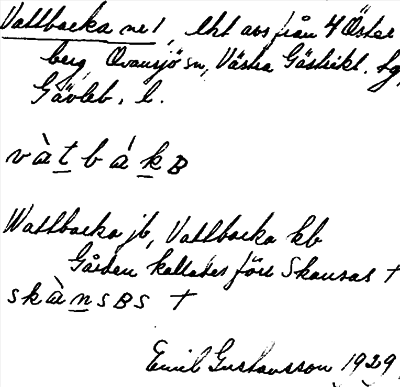 Vattbacka nr 1, lht avs från 4 Öster
berg, Ovansjö sn, Västra Gästrikl. tg,
Gävleb. l.
vàtbákB
Wattbacka jb, Vattbacka kb
Gården kallades förr Skansas †
skànsBs †
Emil Gustavsson 1929